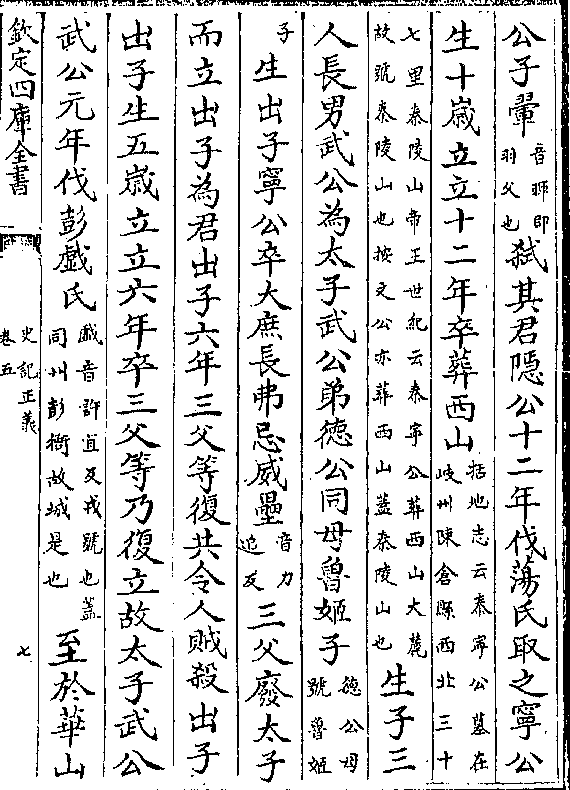 公子翬
音暉即
羽父也
弑其君隠公十二年伐蕩氏取之寧公
生十嵗立立十二年卒葬西山
括地志云秦寧公墓在
岐州陳倉縣西北三十
七里秦陵山帝王世紀云秦寧公葬西山大麓
故號秦陵山也按文公亦葬西山蓋秦陵山也
生子三
人長男武公為太子武公弟德公同母魯姬子
德公母
號魯姬
子
生出子寧公卒大庶長弗忌威壘
音力
追反
三父廢太子
而立出子為君出子六年三父等復共令人賊殺出子
出子生五嵗立立六年卒三父等乃復立故太子武公
武公元年伐彭戱氏
戱音許宜反戎號也蓋
同州彭衙故城是也
至於華山
欽定四庫全書
史記正義
卷五
七